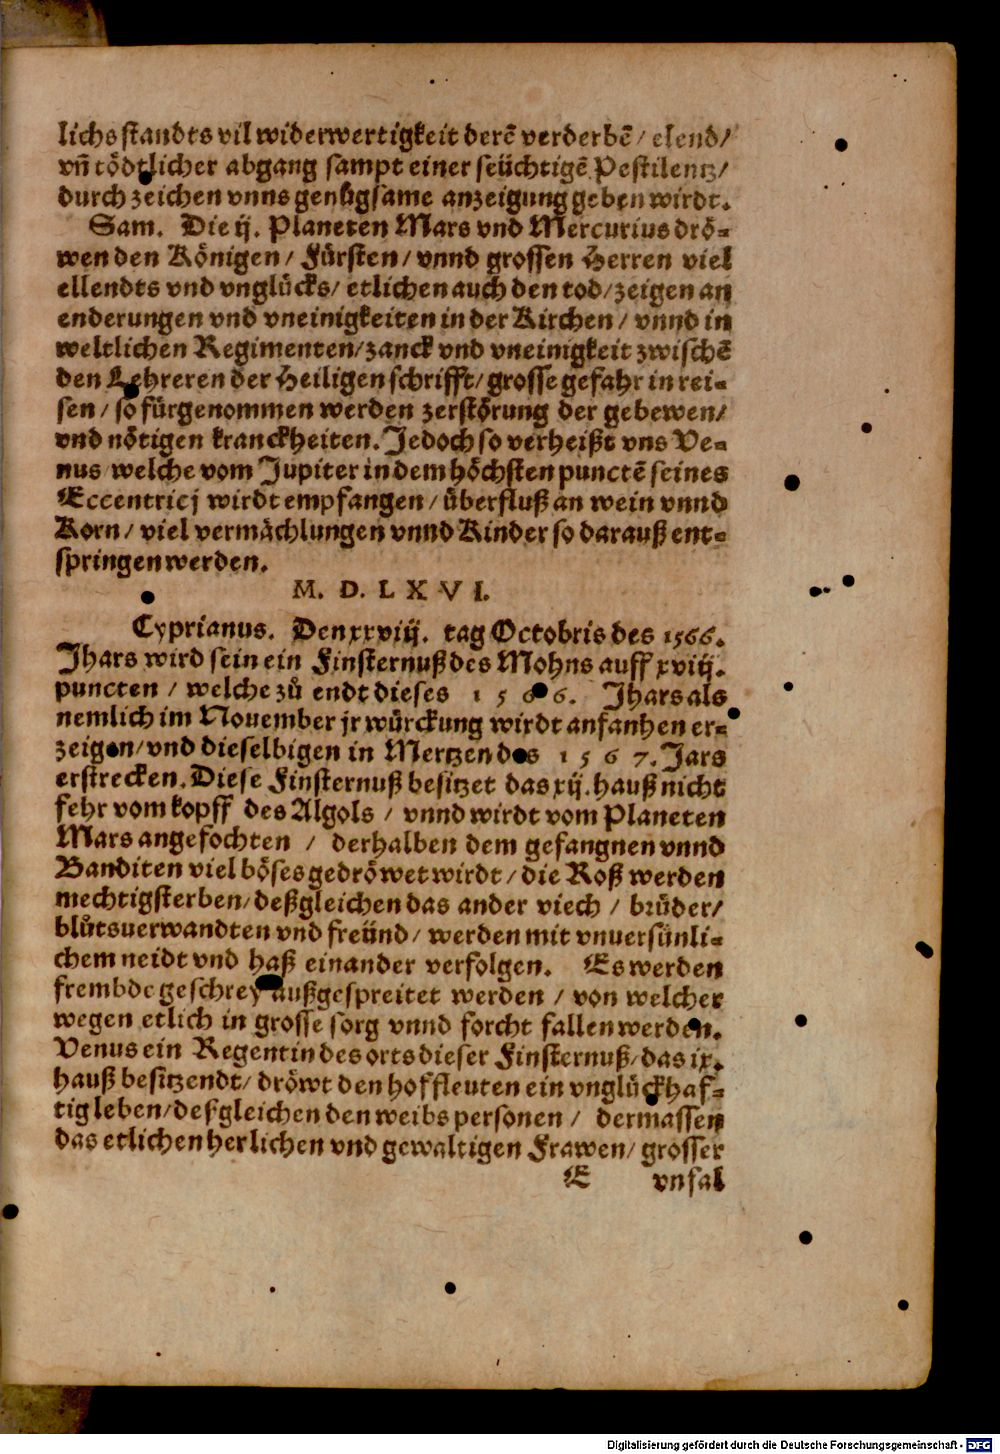 lichs standts vil widerwertigkeit derē verderbē / elend /
vñ tödtlicher abgang sampt einer seüchtigē Pestilentz /
durch zeichen vnns genůgsame anzeigung geben wirdt.
Sam. Die ij. Planeten Mars vnd Mercurius drö-
wen den Königen / Fürsten / vnnd grossen Herren viel
ellendts vnd vnglücks / etlichen auch den tod / zeigen an
enderungen vnd vneinigkeiten in der Kirchen / vnnd in
weltlichen Regimenten / zanck vnd vneinigkeit zwischē
den Lehreren der Heiligen schrifft / grosse gefahr in rei-
sen / so fürgenommen werden zerstörung der gebewen /
vnd nötigen kranckheiten. Jedoch so verheißt vns Ve-
nus welche vom Jupiter in dem höchsten punctē seines
Eccentricj wirdt empfangen / überfluß an wein vnnd
Korn / viel vermächlungen vnnd Kinder so darauß ent-
springen werden.
M. D. L X V I.
Cyprianus. Den xxviij. tag Octobris des 1566.
Jhars wird sein ein Finsternuß des Mohns auff xviij.
puncten / welche zů endt dieses 1 5 6 6. Jhars als
nemlich im Nouember jr würckung wirdt anfanhen er-
zeigen / vnd dieselbigen in Mertzen des 1 5 6 7. Jars
erstrecken. Diese Finsternuß besitzet das xij. hauß nicht
fehr vom kopff des Algols / vnnd wirdt vom Planeten
Mars angefochten / derhalben dem gefangnen vnnd
Banditen viel böses gedröwet wirdt / die Roß werden
mechtig sterben / deßgleichen das ander viech / brüder /
blůtsuerwandten vnd freünd / werden mit vnuersünli-
chem neidt vnd haß einander verfolgen. Es werden
frembde geschrey außgespreitet werden / von welcher
wegen etlich in grosse sorg vnnd forcht fallen werden.
Venus ein Regentin des orts dieser Finsternuß / das ix.
hauß besitzendt / dröwt den hoffleuten ein vnglückhaf-
tig leben / desgleichen den weibs personen / dermassen
das etlichen herlichen vnd gewaltigen Frawen / grosser
E vnfal
Digitalisierung gefördert durch die Deutsche Forschungsgemeinschaft - DFG